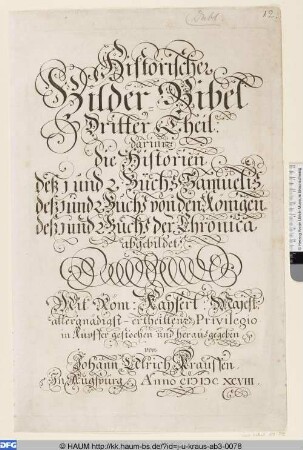 12
Historischer
Bilder Bibel
Dritter Theil.
darinn
die Historien
deß 1 und 2 Buchs Samuelis
deß 1 und 2 Buchs von den Königen
deß 1 und 2 Buchs der Chronica
abgebildet.
Mit Röm: Kayserl: Majest:
allergnädigst-ertheiltem Privilegio
in Kupffer gestochen und herausgegeben
von
Johann Ulrich Kraussen
In Augspurg Anno CIƆ IƆC XCVIII.
DFG
© HAUM http://kk.haum-bs.de/?id=j-u-kraus-ab3-0078